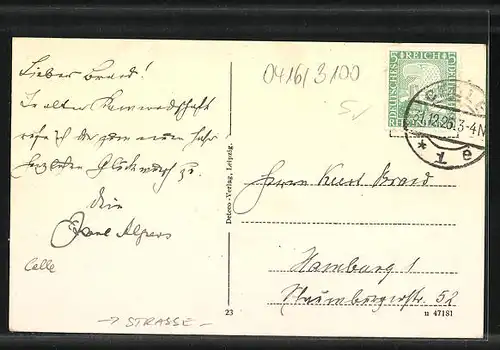 Lieber Braid!
In alter Kameradschaft
rufe ich dir zum neuen Jahr
herzlichen Glückwunsch zu.
Dein
Paul Alpers
Celle
→ STRASSE -
Deteco-Verlag, Leipzig.
23
0416/3100
DEUTSCHES REICH
CELLE
31.12.26.3-4N
* 1 e
Herrn Kurt Braid
Hamburg 1
52
u 47181